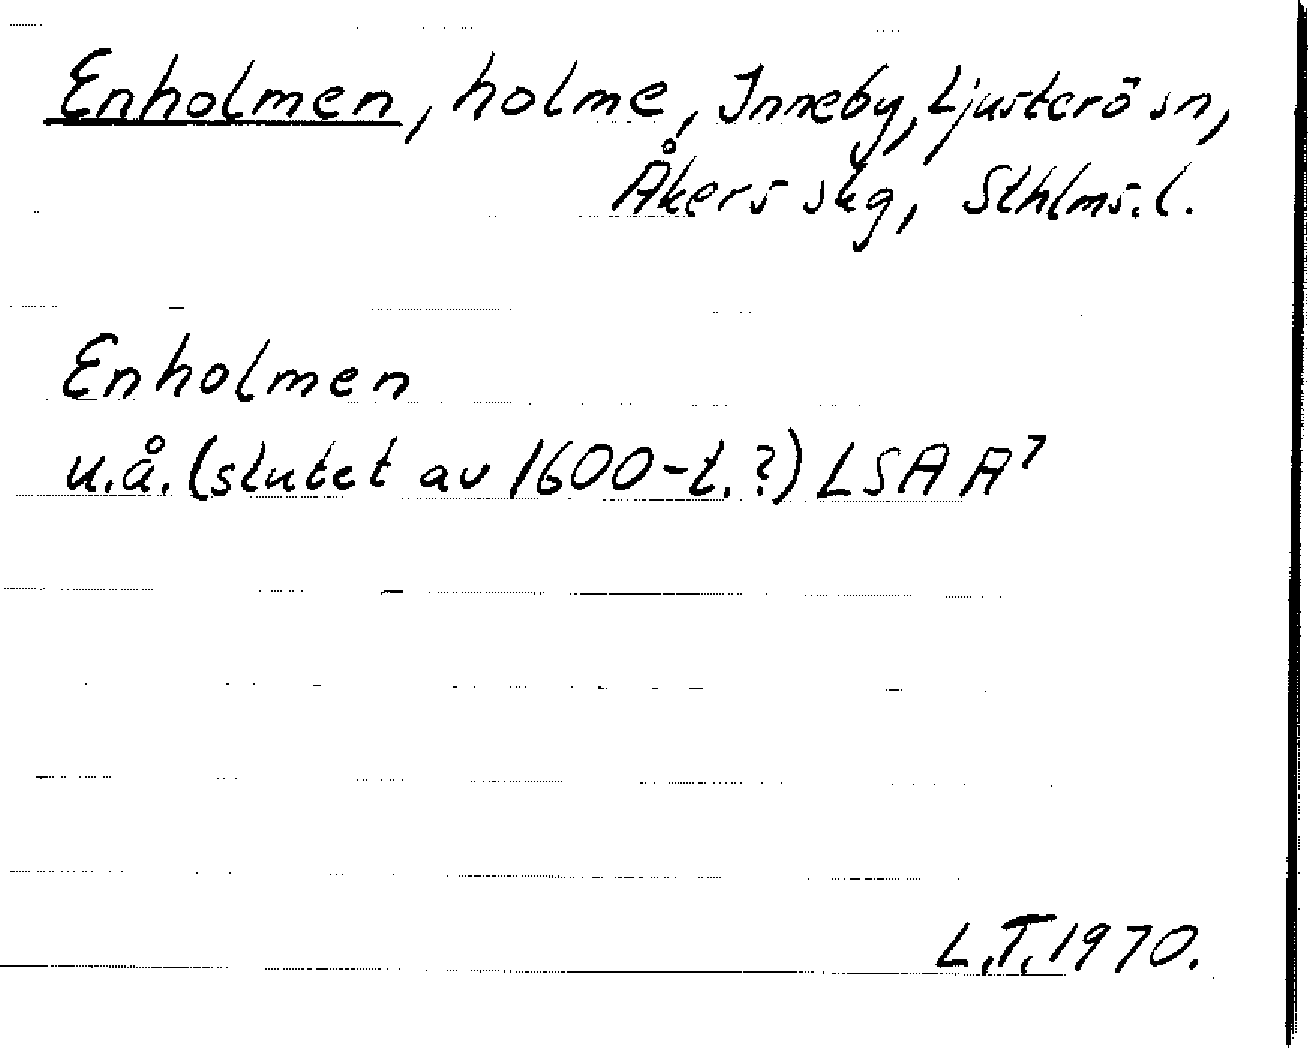 Enholmen, holme, Inneby, Ljusterö sn,
Åkers skg, Sthlms. l.
Enholmen
u.å. (slutet av 1600-t.?) LSA A⁷
L.T. 1970.